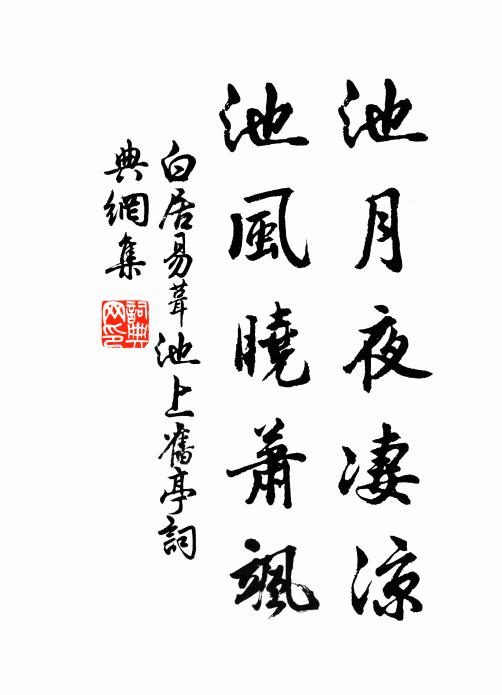 池月夜淒涼
池風曉蕭颯
白居易葺池上舊亭詞
典網集
詞典網印